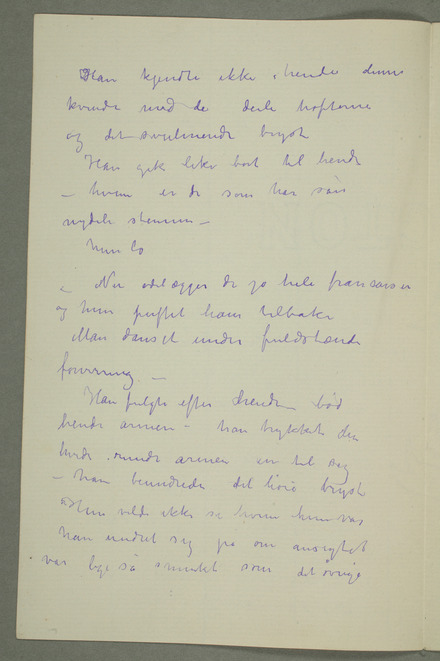 Han kjendte ikke hende denne
kvinde med de deile hofterne
og det svulmende bryst
Han gik like bort til hende
– hvem er de som har sån
nydeli stemme –
Hun lo
– Nu ødelægger de jo hele fransaisen
og hun puffet ham tilbake
Man danset under fuldstændi
forvirring. –
Han fulgte efter hende bød
hende armen – han trykkede den
hvide runde armen in til sig
– han beundrede det bryst
Hun vilde ikke si hvem hun var
han undret sig på om ansigtet
var lige så smukt som det øvrige